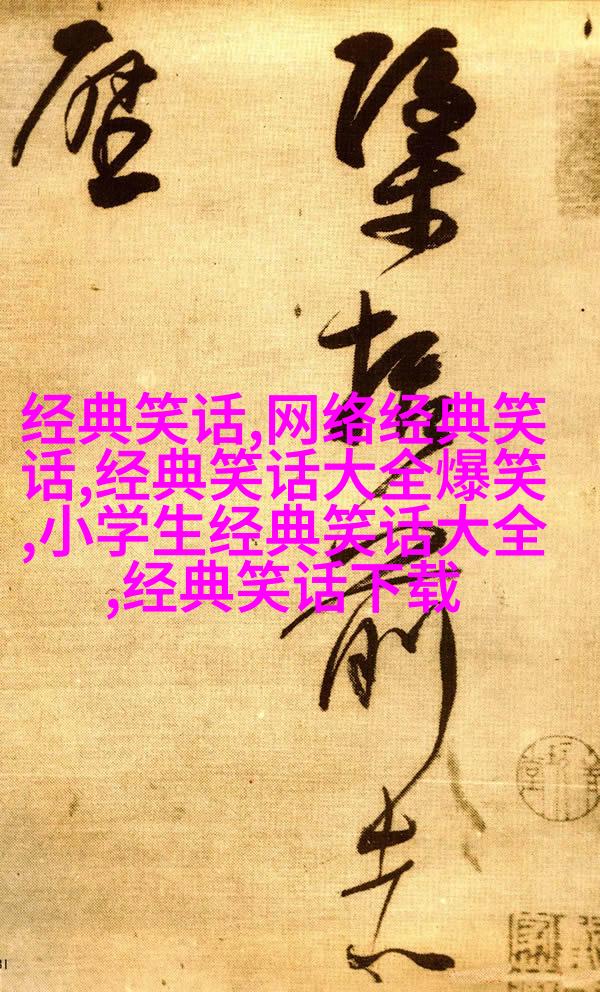 前志
经典笑话,网络经典笑
话,经典笑话大全爆笑
,小学生经典笑话大全
,经典笑话下载